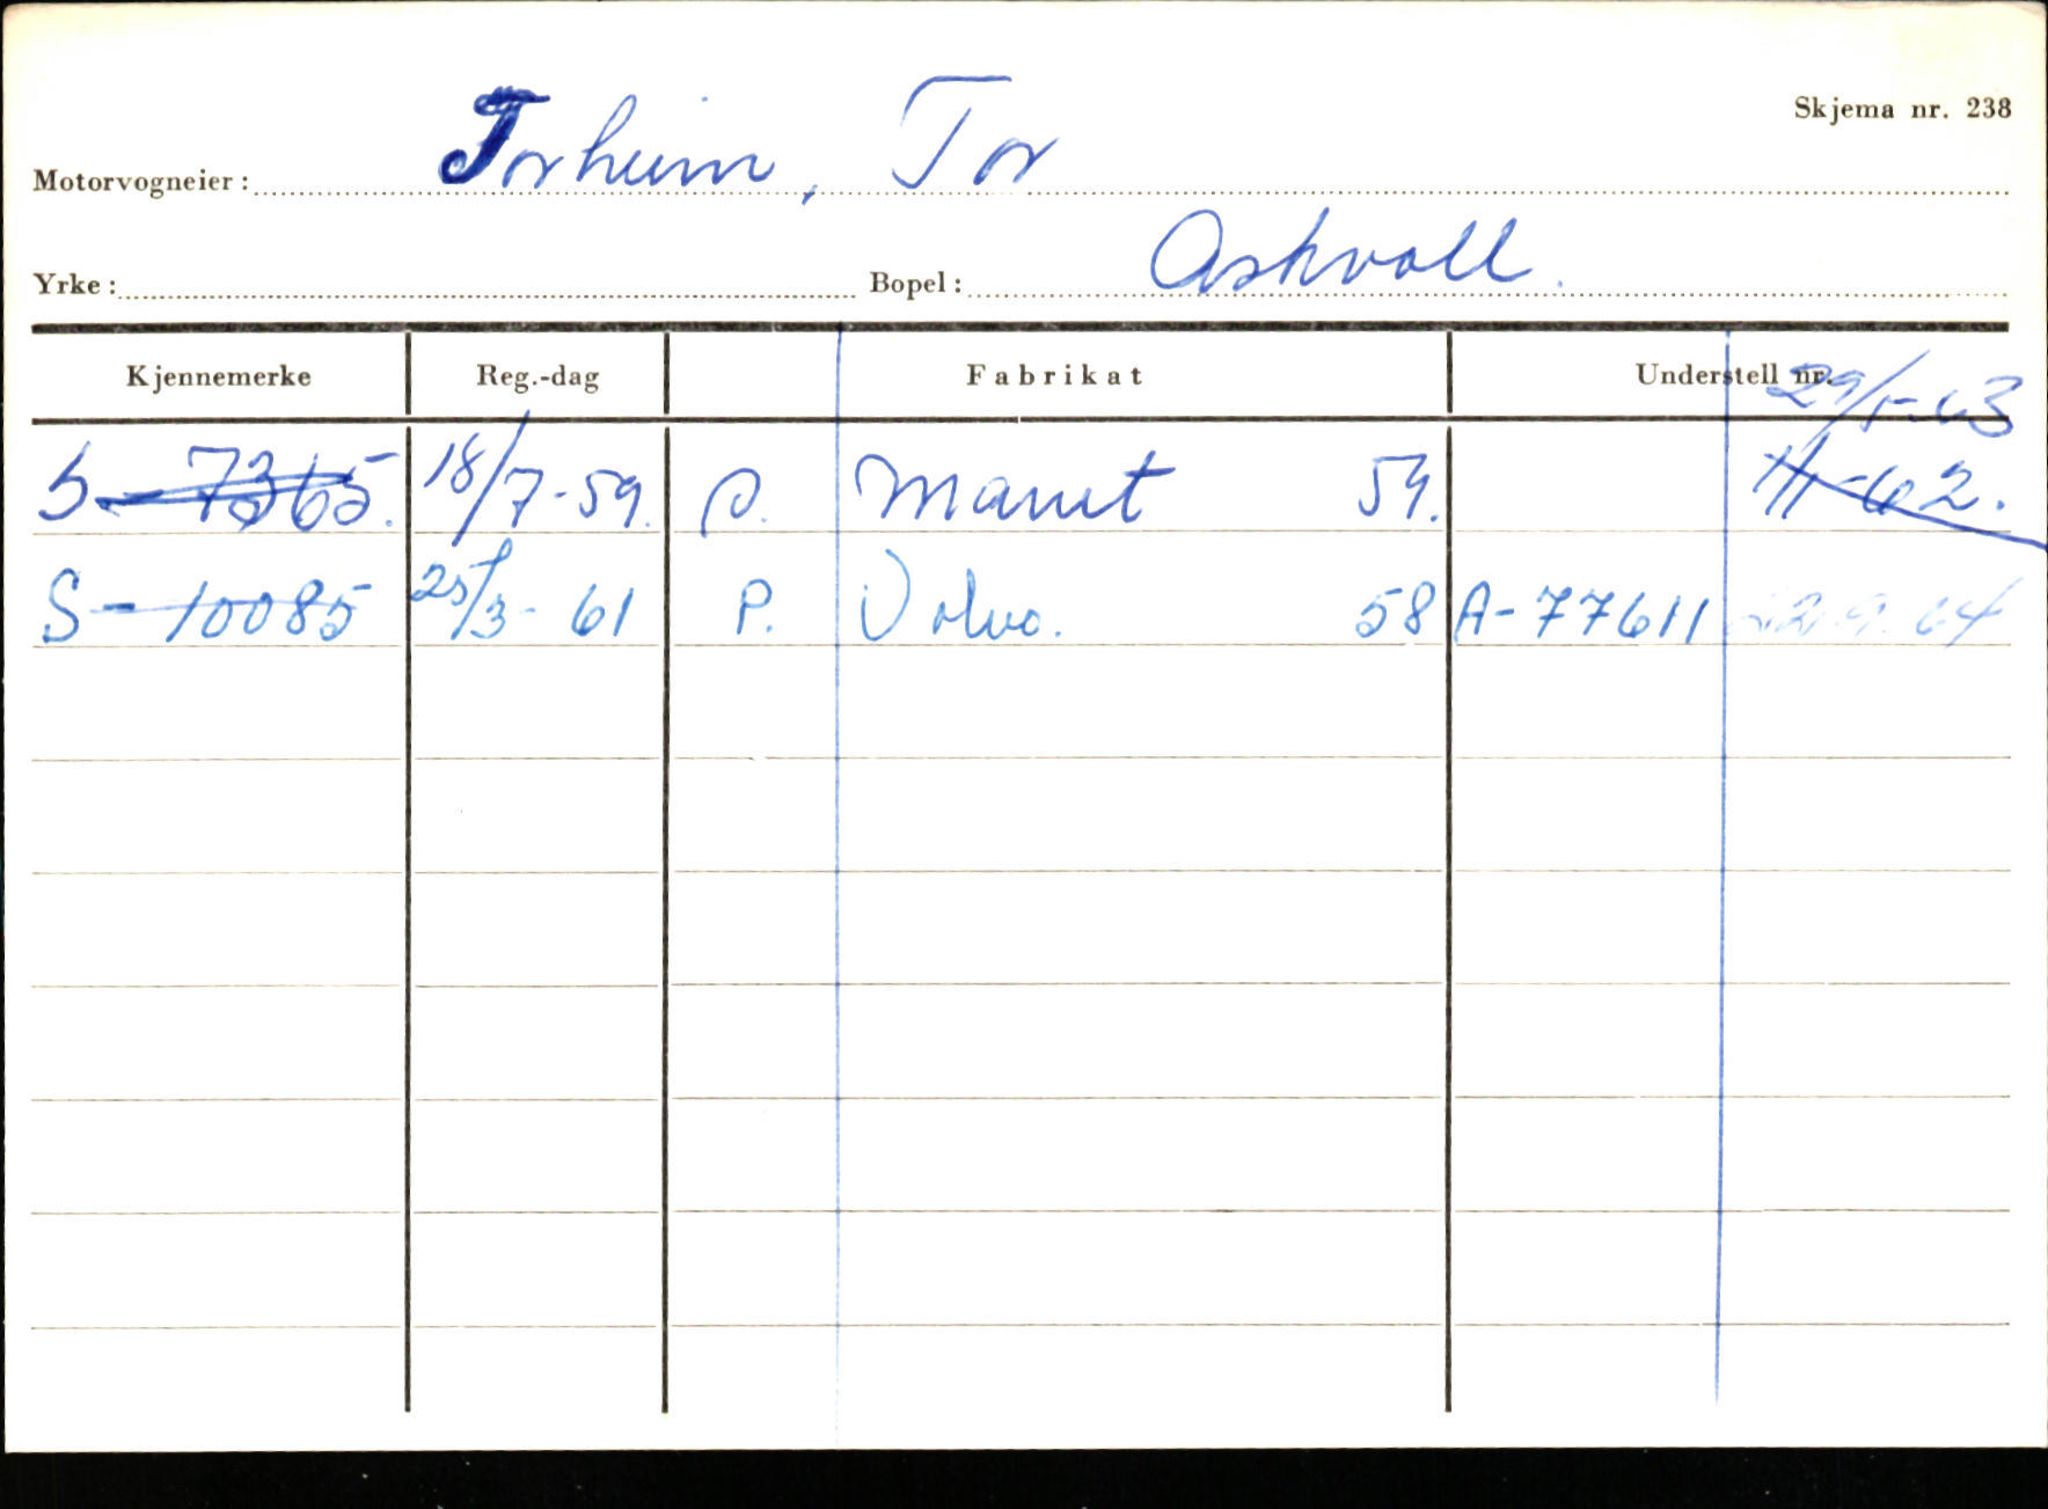 Skjema nr. 238
Motorvogneier: Torheim, Tor
Yrke: Bopel: Askvoll.
Kjennemerke Reg.-dag Fabrikat Understell nr.
29/1-63
S-7365. 18/7-59. P. Manet 59. 1/1-62.
S-10085 25/3-61 P. Volvo. 58 A-77611 22.9.64